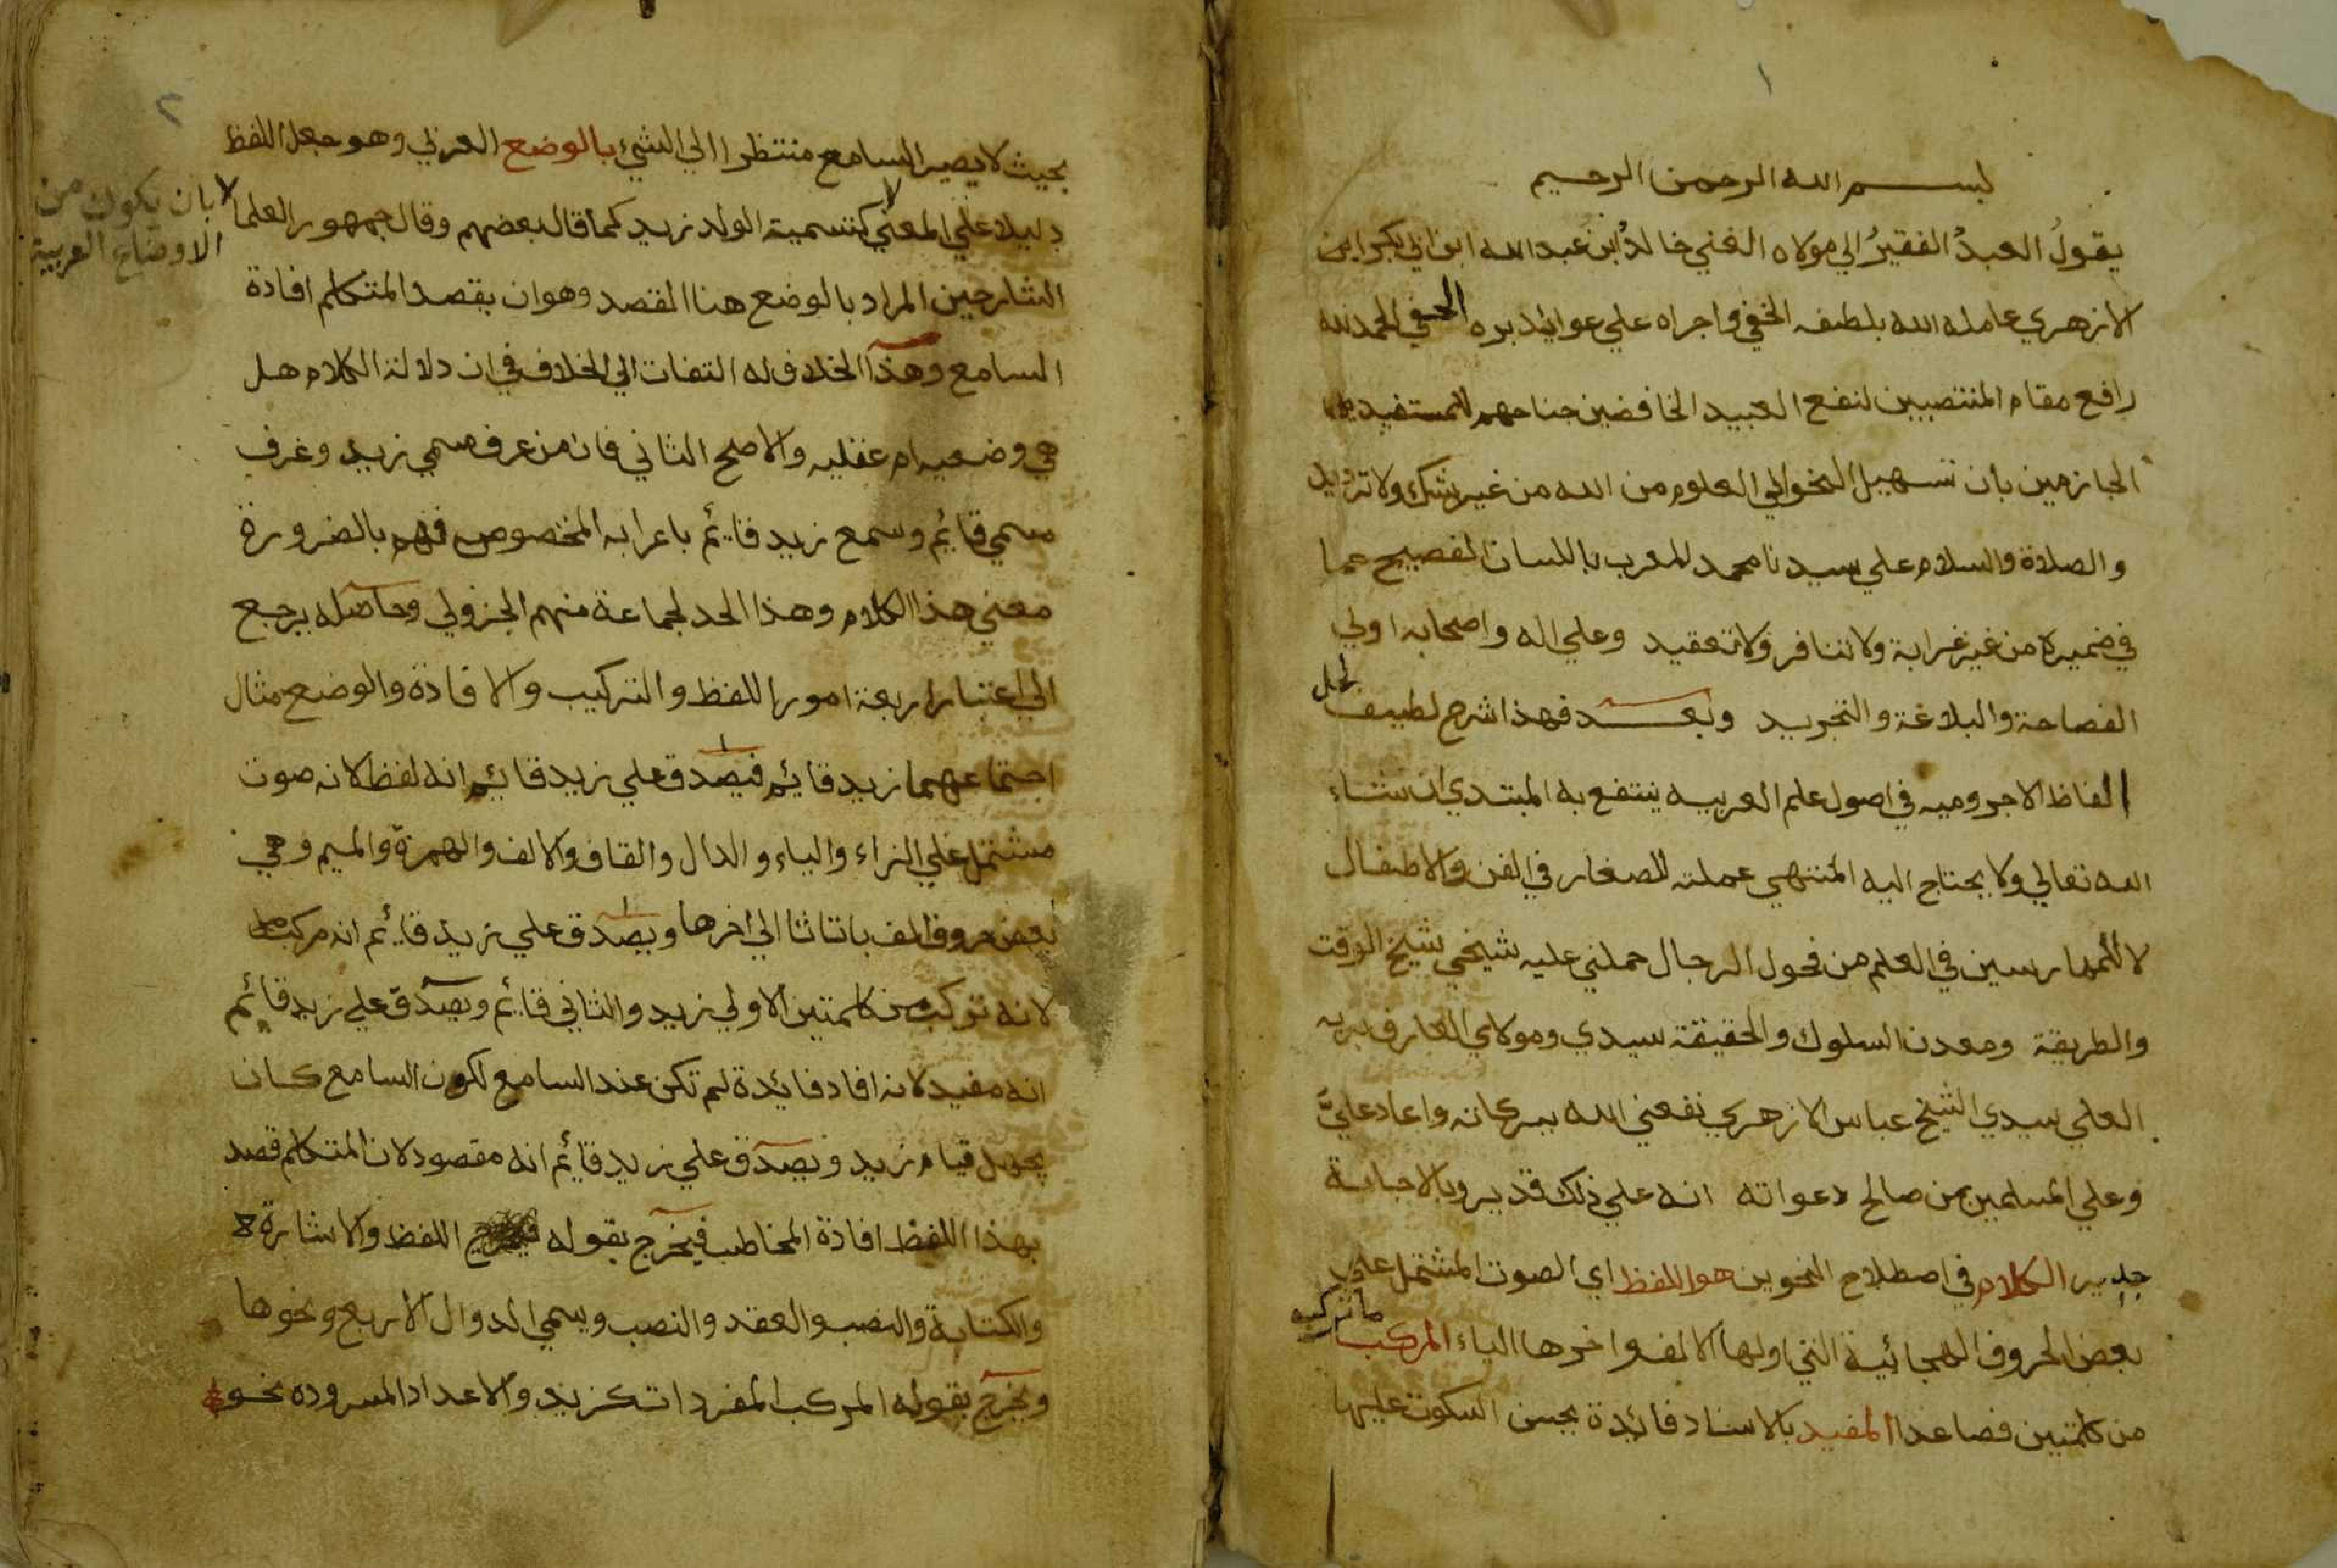 ١
بسم الله الرحمن الرحيم
يقول العبدُ الفقيرُ الي مولاه الغني خالدُ ابن عبد الله ابن ابي بكر ابن
الازهري عامله الله بلطفه الخفي واجراه علي عوائد بره الحفي الحمد لله
رافع مقام المنتصبين لنفع العبيد الخافضين جناحهم للمستفيدين
الجازمين بان تسهيل النحو الي العلوم من الله من غير شك ولا ترديد
والصلاة والسلام علي سيدنا محمد المعرب باللسان الفصيح عما
في ضميره من غير غرابة ولا تنافر ولا تعقيد وعلي اله واصحابه اولي
الفصاحة والبلاغة والتجريد وبعد فهذا شرح لطيف لحل
الفاظ الاجروميه في اصول علم العربيه ينتفع به المبتدي ان شاء
الله تعالي ولا يحتاج اليه المنتهي عملته للصغار في الفن والاطفال
لا للممارسين في العلم من فحول الرجال حملني عليه شيخي شيخ الوقت
والطريقة ومعدن السلوك والحقيقة سيدي ومولاي العارف بربه
العلي سيدي الشيخ عباس الازهري نفعني الله ببركاته واعاد عليَّ
وعلي المسلمين من صالح دعواته انه علي ذلك قدير وبالاجابة
جدير الكلام في اصطلاح النحوين هو اللفظ اي الصوت المشتمل علي
بعض الحروف الهجائية التي اولها الالف واخرها الياء المركب ما تركب
من كلمتين فصاعدا المفيد بالاسناد فائدة يحسن السكوت عليها
٢
بحيث لا يصير السامع منتظرا الي الشيء بالوضع العربي وهو جعل اللفظ
دليلا علي المعني كتسمية الولد زيد كما قال بعضهم وقال جمهور العلما
لا بان يكون من
الاوضاع العربية
الشارحين المراد بالوضع هنا القصد وهو ان يقصد المتكلم افادة
السامع وهذا الخلاف له التفات الي الخلاف في ان دلالة الكلام هل
هي وضعيه ام عقليه والاصح الثاني فان من عرف مسمي زيد وعرف
مسمي قائم وسمع زيد قائم باعرابه المخصوص فهم بالضرورة
معني هذا الكلام وهذا الحد لجماعة منهم الجزولي وحاصله يرجع
الي اعتبار اربعة امور اللفظ والتركيب والافادة والوضع مثال
اجتماعهما زيد قائم فيصدق علي زيد قائم انه لفظ لانه صوت
مشتمل علي الزاء والياء والدال والقاف والالف والهمزة والميم وهي
بعض حروف الف با تا ثا الي اخرها ويصدق علي زيد قائم انه مركب
لانه تركب من كلمتين الاولي زيد والثاني قائم ويصدق علي زيد قائم
انه مفيد لانه افاد فائدة لم تكن عند السامع لكون السامع كان
يجهل قيام زيد ويصدق علي زيد قائم انه مقصود لان المتكلم قصد
بهذا اللفظ افادة المخاطب فيخرج بقوله اللفظ والاشارة
والكتابة والنصب والعقد والنصب ويسمي الدوال الاربع ونحوها
ويخرج بقوله المركب المفردات كزيد والاعداد المسروده نحو